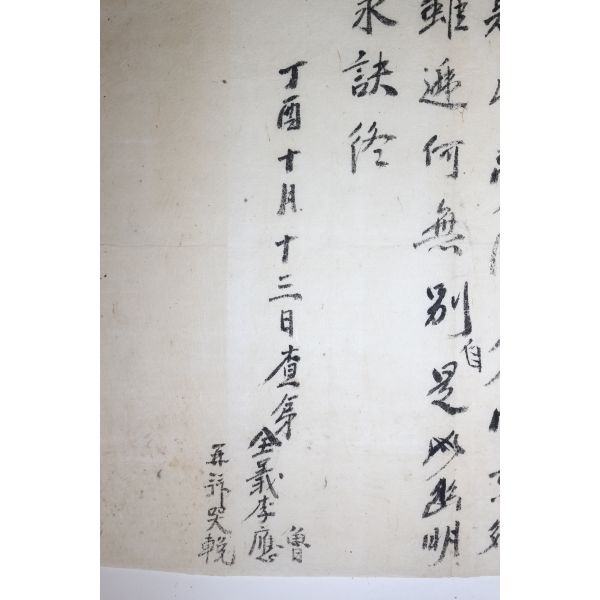 雖遞何無別自是以幽明
永訣終
丁酉十月十三日查弟
全義李應魯
再拜哭輓